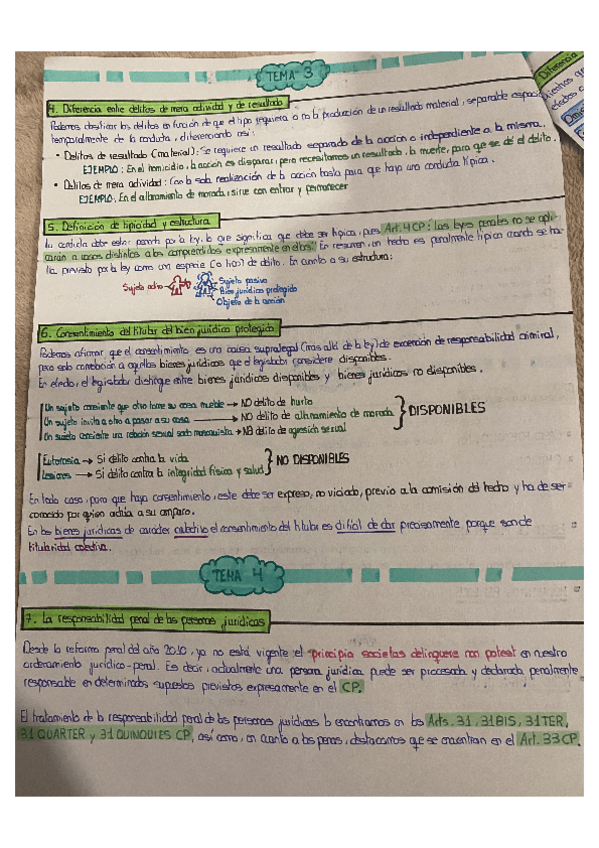 TEMA 3
4. Diferencia entre delitos de mera actividad y de resultado
Podemos clasificar los delitos en función de que el tipo requiera o no la producción de un resultado material, separable espacio
temporalmente de la conducta, diferenciando así:
• Delitos de resultado (material): Se requiere un resultado separado de la acción o independiente a la misma.
EJEMPLO: En el homicidio, la acción es disparar, pero necesitamos un resultado, la muerte, para que se dé el delito.
• Delitos de mera actividad: Con la sola realización de la acción basta para que haya una conducta típica.
EJEMPLO: En el allanamiento de morada, sirve con entrar y permanecer
5. Definición de tipicidad y estructura
La conducta debe estar penada por la ley, lo que significa que debe ser típica, pues Art. 4 CP: "las leyes penales no se apli-
carán a casos distintos a los comprendidos expresamente en ellas". En resumen, un hecho es penalmente típico cuando se ha-
lla previsto por la ley como una especie (o tipo) de delito. En cuanto a su estructura:
Sujeto activo
Sujeto pasivo
Bien jurídico protegido
Objeto de la acción
6. Consentimiento del titular del bien jurídico protegido
Podemos afirmar que el consentimiento es una causa supralegal (más allá de la ley) de exención de responsabilidad criminal,
pero solo con relación a aquellos bienes jurídicos que el legislador considere disponibles.
En efecto, el legislador distingue entre bienes jurídicos disponibles y bienes jurídicos no disponibles.
Un sujeto consiente que otro tome su cosa mueble → NO delito de hurto
Un sujeto invita a otro a pasar a su casa → NO delito de allanamiento de morada
Un sujeto consiente una relación sexual sado masoquista → NO delito de agresión sexual
DISPONIBLES
Eutanasia → Sí delito contra la vida
Lesiones → Sí delito contra la integridad física y salud
NO DISPONIBLES
En todo caso, para que haya consentimiento, este debe ser expreso, no viciado, previo a la comisión del hecho y ha de ser
conocido por quien actúa a su amparo.
En los bienes jurídicos de carácter colectivo el consentimiento del titular es difícil de dar precisamente porque son de
titularidad colectiva.
TEMA 4
7. La responsabilidad penal de las personas jurídicas
Desde la reforma penal del año 2010, ya no está vigente el "principio societas delinquere non potest en nuestro
ordenamiento jurídico-penal. Es decir, actualmente una persona jurídica puede ser procesada y declarada penalmente
responsable en determinados supuestos previstos expresamente en el CP.
El tratamiento de la responsabilidad penal de las personas jurídicas lo encontramos en los Arts. 31, 31 BIS, 31 TER,
31 QUARTER y 31 QUINQUIES CP, así como, en cuanto a las penas, destacamos que se encuentran en el Art. 33 CP.
Diferencia